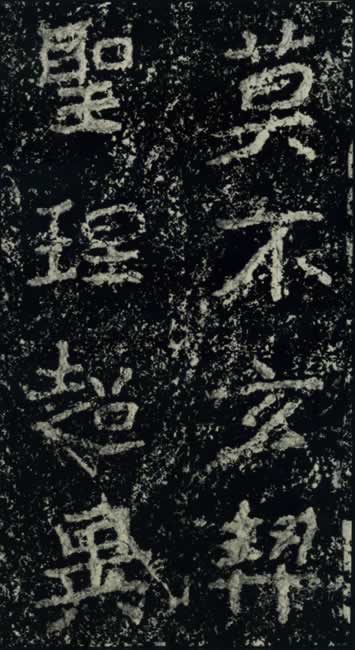 莫不玄契
聖理超異